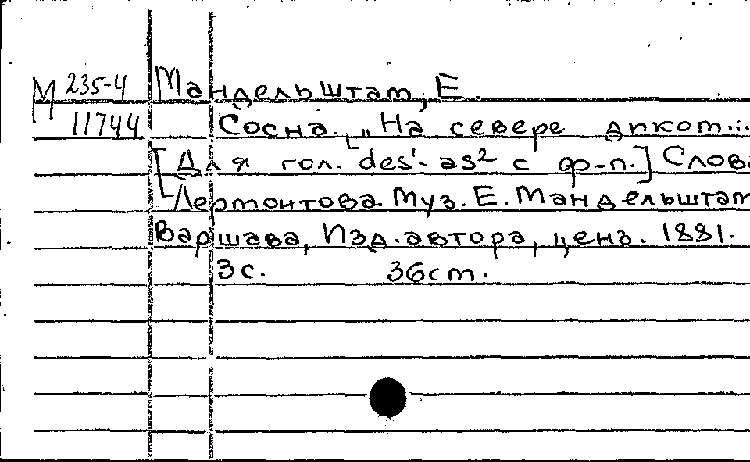 М 235-4 Мандельштам, Е.
11744 Сосна. „На севере диком...
[Для гол. des¹-as² с ф-п.] Слова
Лермонтова. Муз. Е. Мандельштам
Варшава, Изд. автора, ценз. 1881.
3с. 36см.